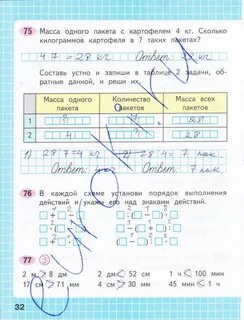 75 Масса одного пакета с картофелем 4 кг. Сколько
килограммов картофеля в 7 таких пакетах?
4 · 7 = 28 кг Ответ: 28 кг
Составь устно и запиши в таблице 2 задачи, обратные данной, и реши их.
Масса одного пакета Количество пакетов Масса всех пакетов
1 ? 7 28
2 4 ? 28
1) 28:7=4 кг 2) 28:4=7 пак
Ответ: 7 пак
76 В каждой схеме установи порядок выполнения
действий и укажи его над знаками действий.
77
2 м > 8 дм 2 дм < 52 см 1 ч < 100 мин
17 см > 71 мм 4 см > 30 мм 45 мин < 1 ч
32